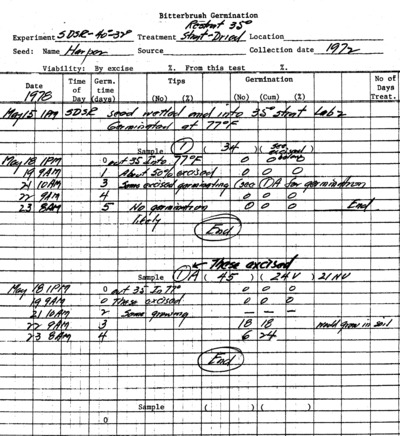 Bitterbrush Germination
Restrat 35°
Experiment SDSR-40-32° Treatment Strat-Dried Location
Seed: Name Harper Source Collection date 1972
Viability: By excise %. From this test %.
Date Time of Day Germ. time (days) Tips (No) (%) Germination (No) (Cum) (%) No of Days Treat.
1978
May 15 1PM SDSR seed wetted and into 35° strat Lab 2
Germinated at 77°F
Sample 1 ( 34 ) ( see excised below )
May 18 1PM 0 out 35 Into 77°F 0 0 0
19 9AM 1 About 50% excised 0 0 0
21 10AM 3 Some excised germinating (see 1A for germination
22 9AM 4 0 0 0
23 8AM 5 No germination 0 0 0 End
likely
End
These excised
Sample 1A ( 45 ) ( 24V ) 21 NV
May 18 1PM 0 out 35 In 77° 0 0 0
19 9AM 0 These excised 0 0 0
21 10AM 2 Some growing — — —
22 9AM 3 18 18 would grow in soil
23 8AM 4 6 24
End
Sample ( ) ( )
0